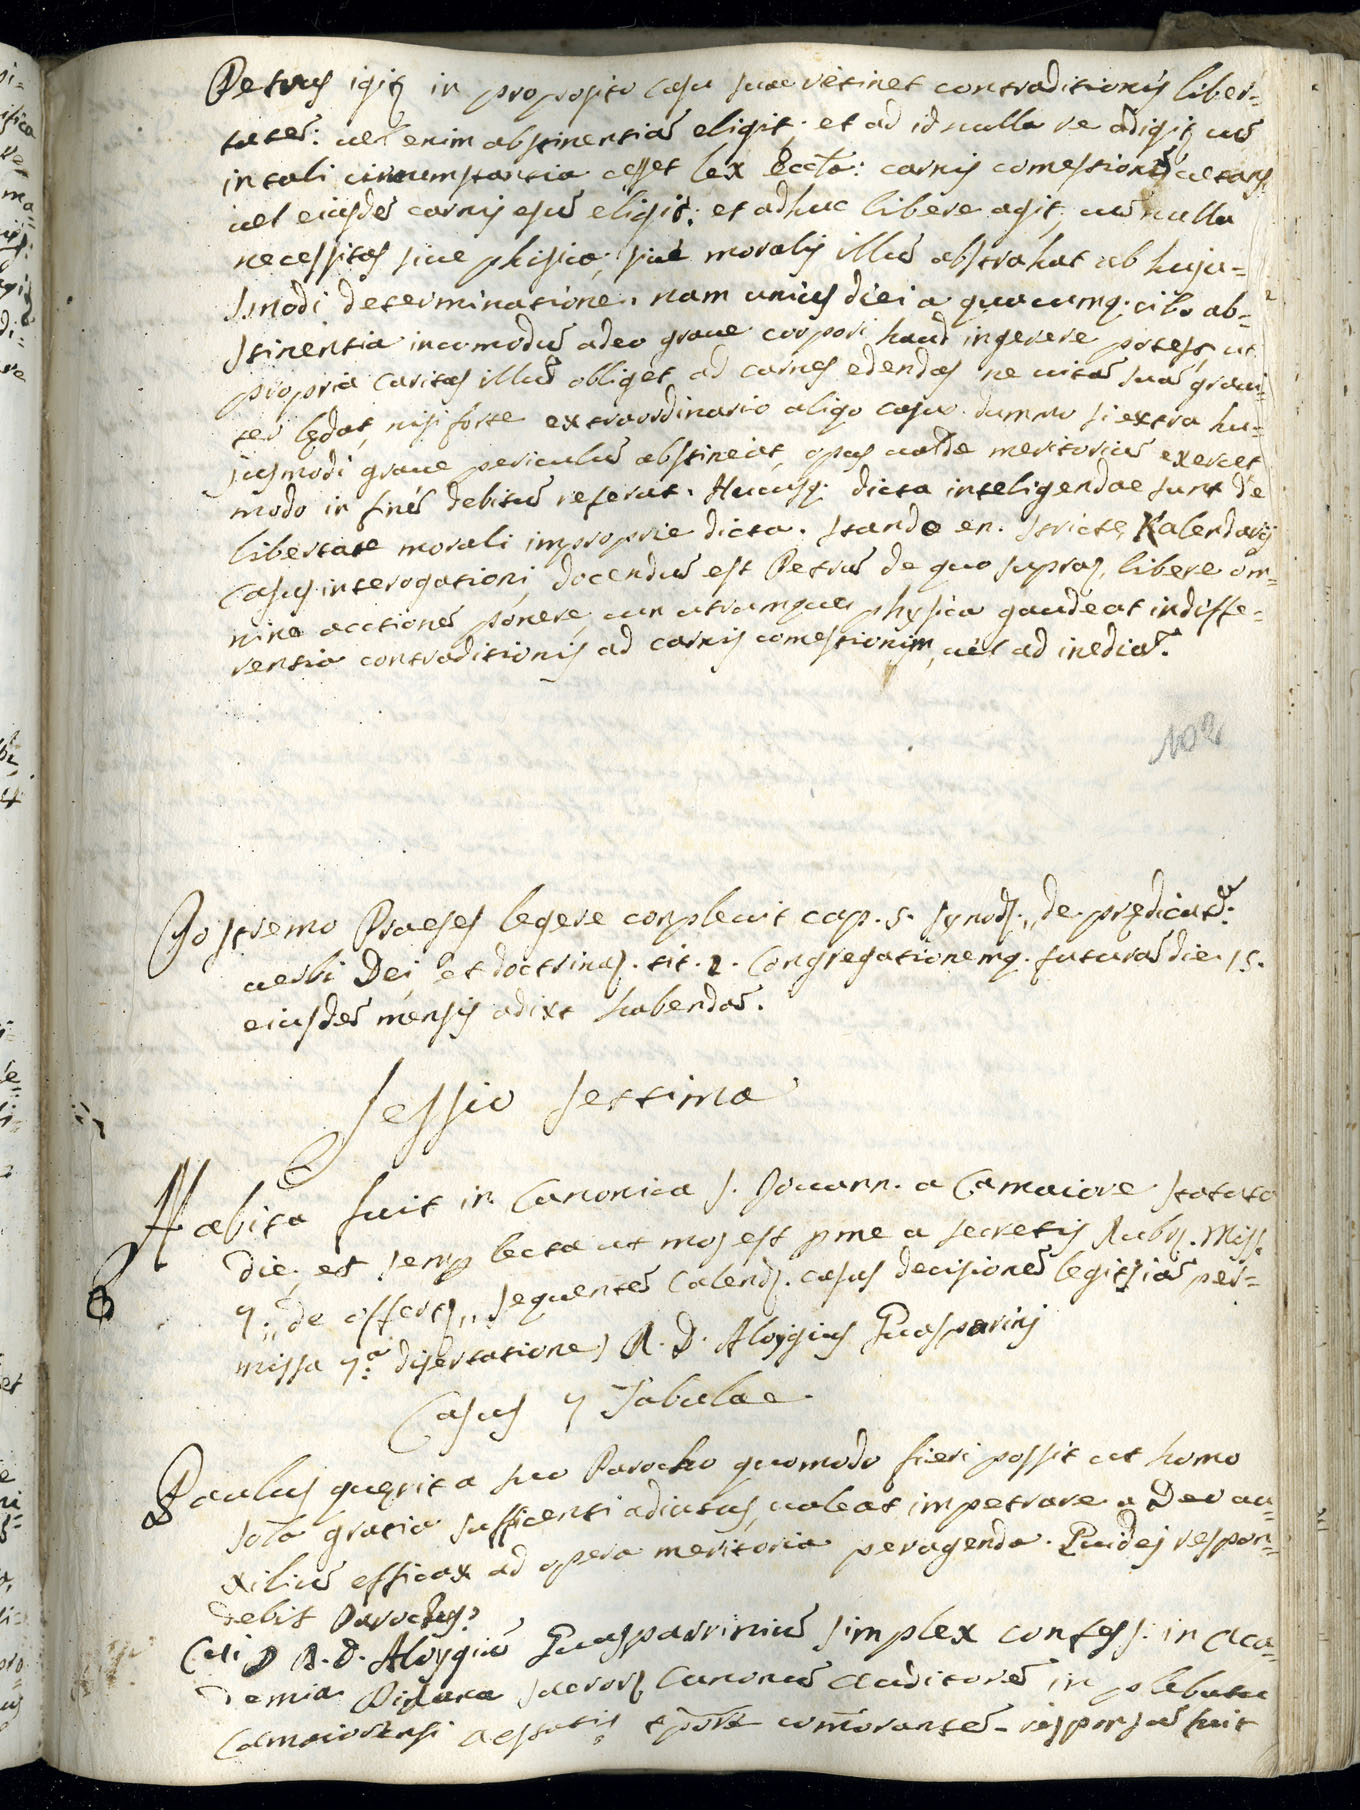 Petrus igit in proposito casu suae retinet contraditionis liber-
tatem: uel enim abstinentiã eligit, et ad id nulla re adigit, cum
in tali circumstantia cesset lex Eccla: carnis comestionẽ uetans,
uel eiusdẽ carnis esum eligit; et adhuc libere agit, cum nulla
necessitas siue phisica, siue moralis illũ abstrahat ab huju-
smodi determinatione. nam unius diei a quacumq; cibo ab-
stinentia incomodũ adeo graue corpori haud ingerere potest, ut
propria caritas illũ obliget ad carnes edendas ne uitã suã graui-
ter lędat, nisi forte extraordinario aliqo casu. dummo si extra hu-
jusmodi graue periculũ abstineat, opus ualde meritoriũ exercet
modo in finẽ debitũ referat. Hucusq; dicta inteligendae sunt de
libertate morali improprie dicta. stando en. strictę Kalendarij
Casus interogationi, docendũ est Petrũ de quo supra, libere om-
nino actionẽ ponere, cum utramque physica gaudeat indiffe-
rentia contraditionis ad carnis comestionem, uel ad inediã.
102
Postremo Praeses legere compleuit cap. 5. synod. ,,de prędicat.e
uerbi Dei, et doctrina. tit. 2. Congregationemq. futurã die 15.
eiusdẽ mensis adixt habendã.
Sessio settima
Habita fuit in Canonica S. Jouann. a Camaiore statuta
die. et semp lecta ut mos est pme a secretis Rubr. Miss.
7 ,,de offert,, sequentẽ Calend. casus decisionẽ legit, iã per-
missa 7.a disertatione) R. D. Aloysius Guasparini
Casus 7 Tabulae.
Paulus quęrit a suo Parocho quomodo fieri possit ut homo
sola gratia sufficenti adiutus, ualeat impetrare a Deo au-
xiliũ efficax ad opera meritoria peragenda. Quid ei respon-
debit Parochus?
Cui D R. D. Aloysiũ Guasparriniũ simplex confess. in Aca-
demia Pisana sacror. Canonũ Auditorẽ in plebatu
Camaiorensi aestatis tpore commorantẽ - responsũ fuit